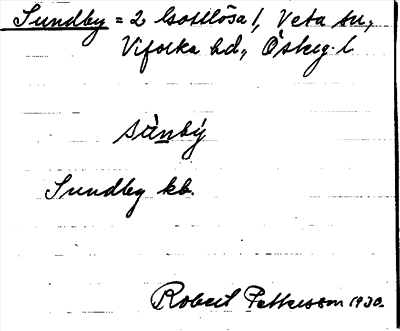 Sundby = 2 Gottlösa l, Veta sn,
Vifolka hd, Östeg. l.
sùnbý
Sundby kb.
Robert Pettersson 1930.